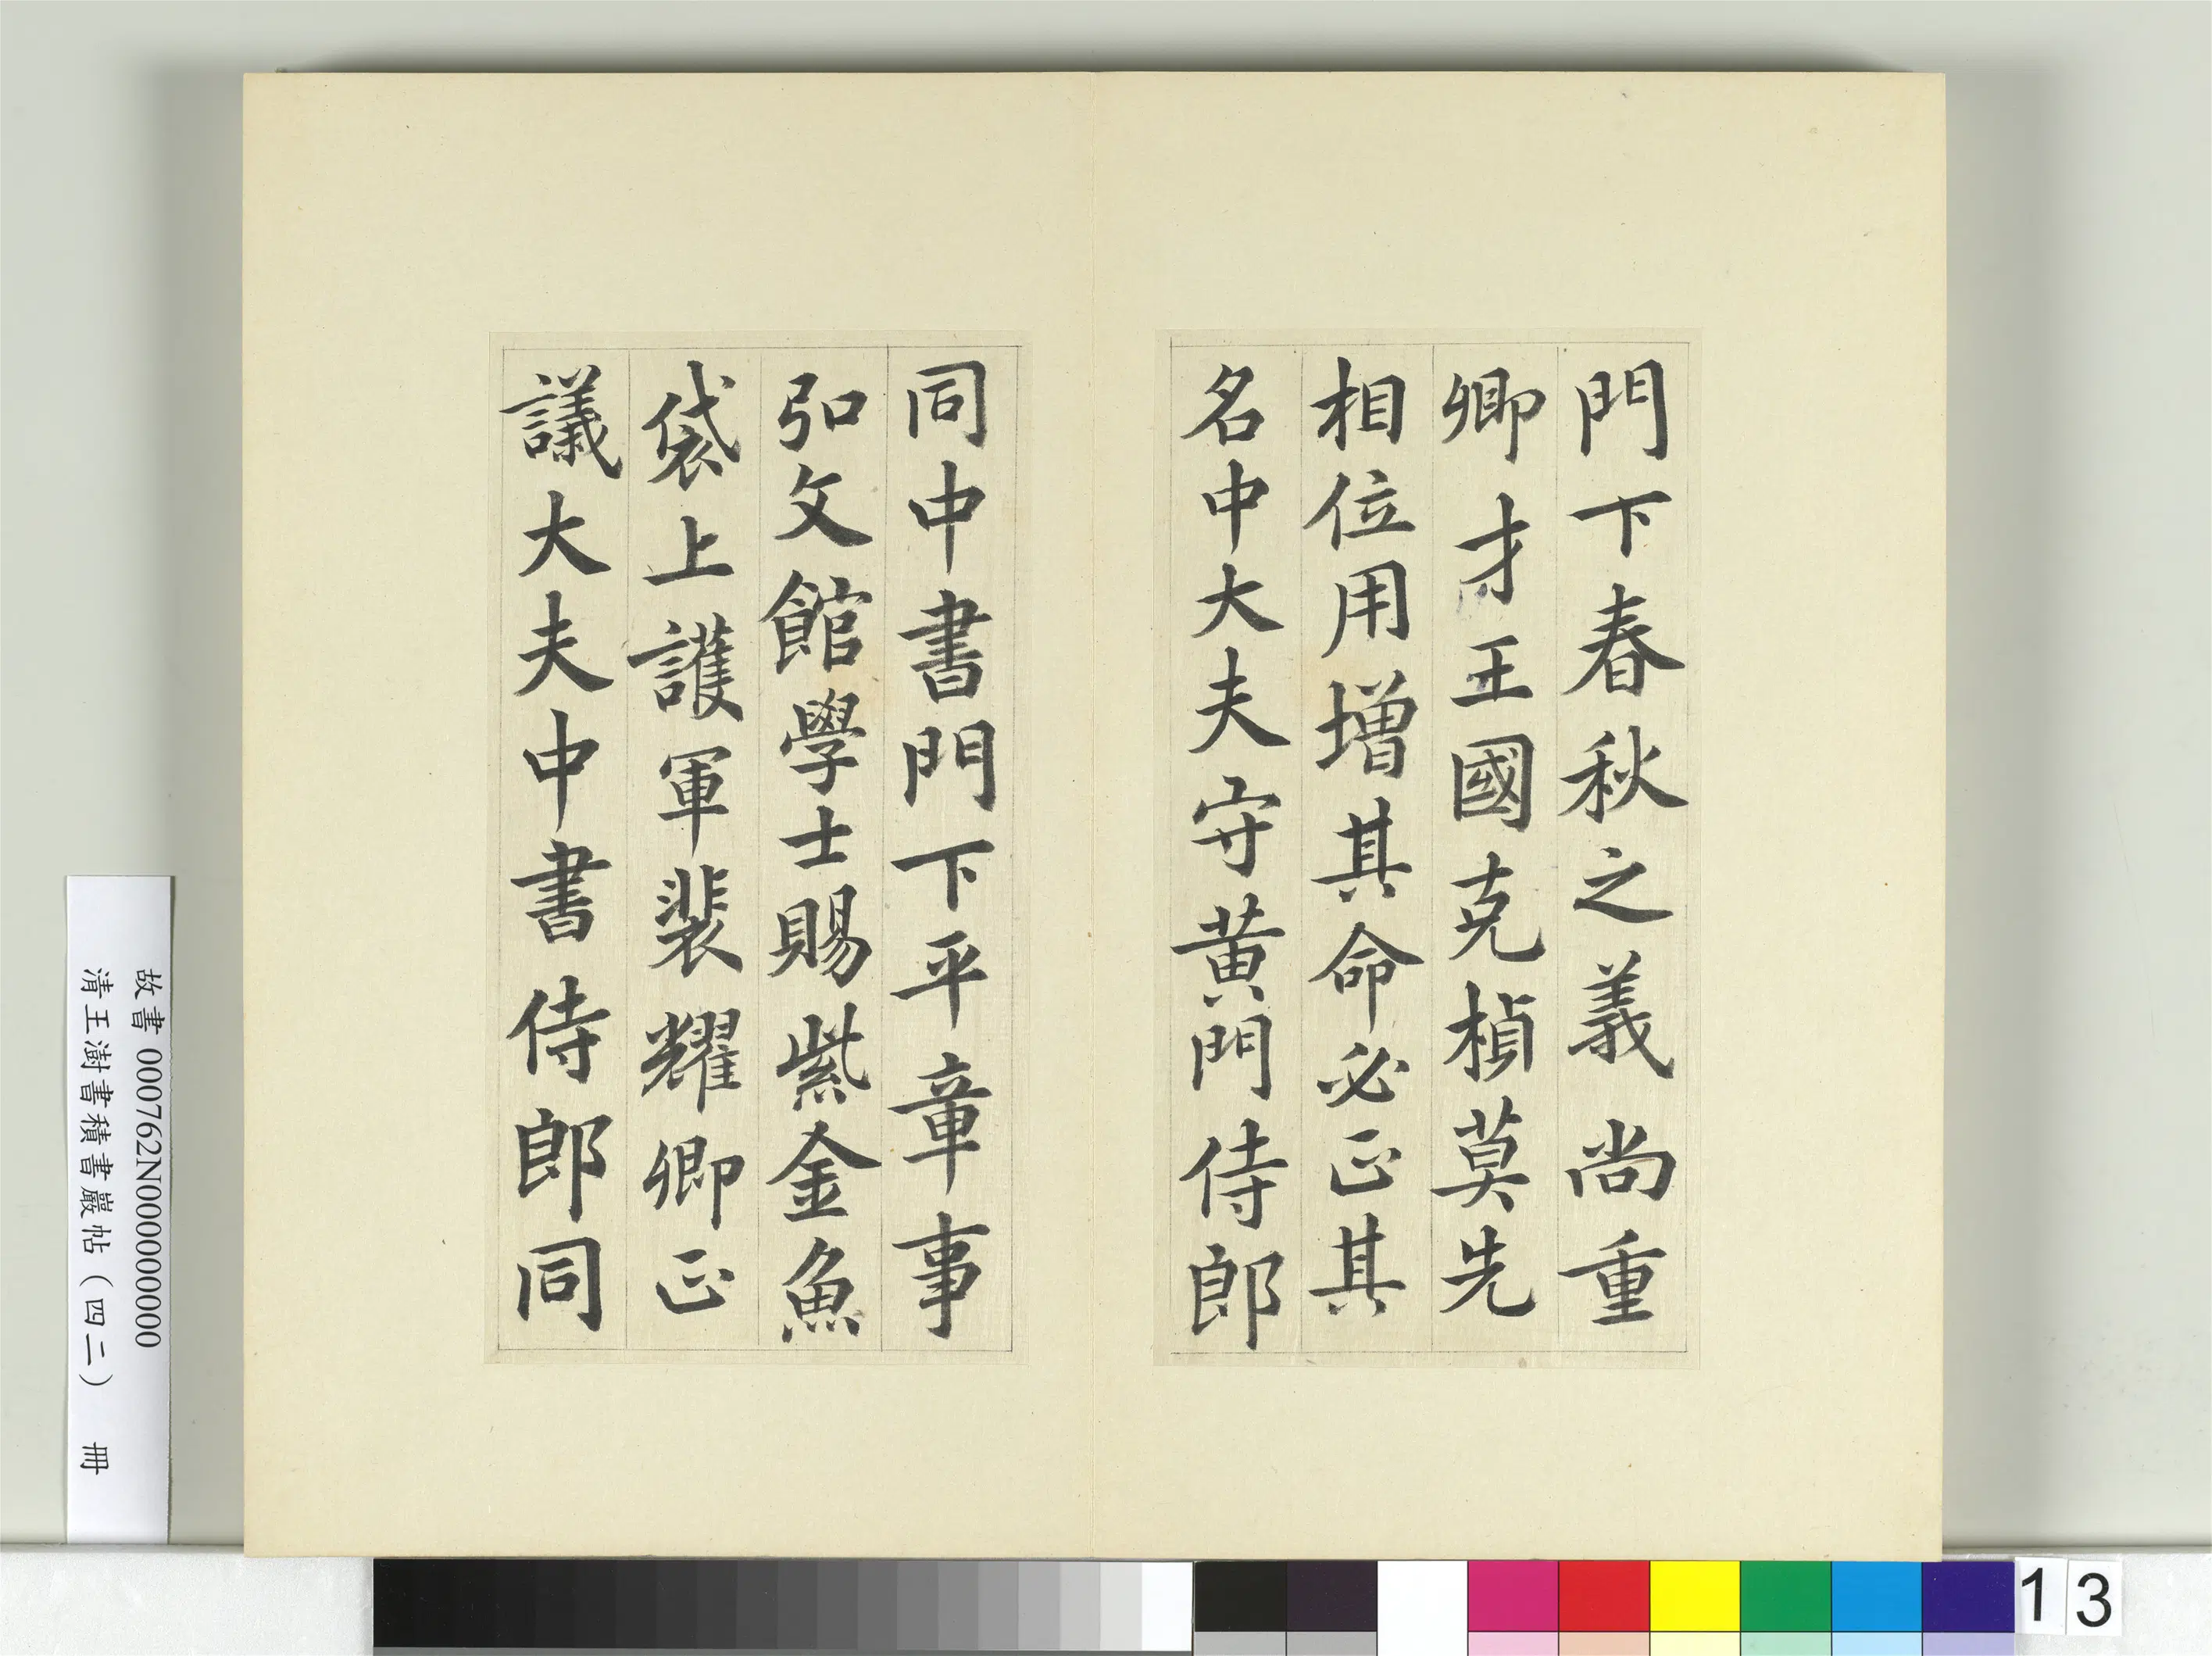 門下春秋之義尚重
卿才王國克楨莫先
相位用增其命必正其
名中大夫守黃門侍郎
同中書門下平章事
弘文館學士賜紫金魚
袋上護軍裴耀卿正
議大夫中書侍郎同
故書 000762N000000000
清王澍書積書巖帖(四二) 冊
13